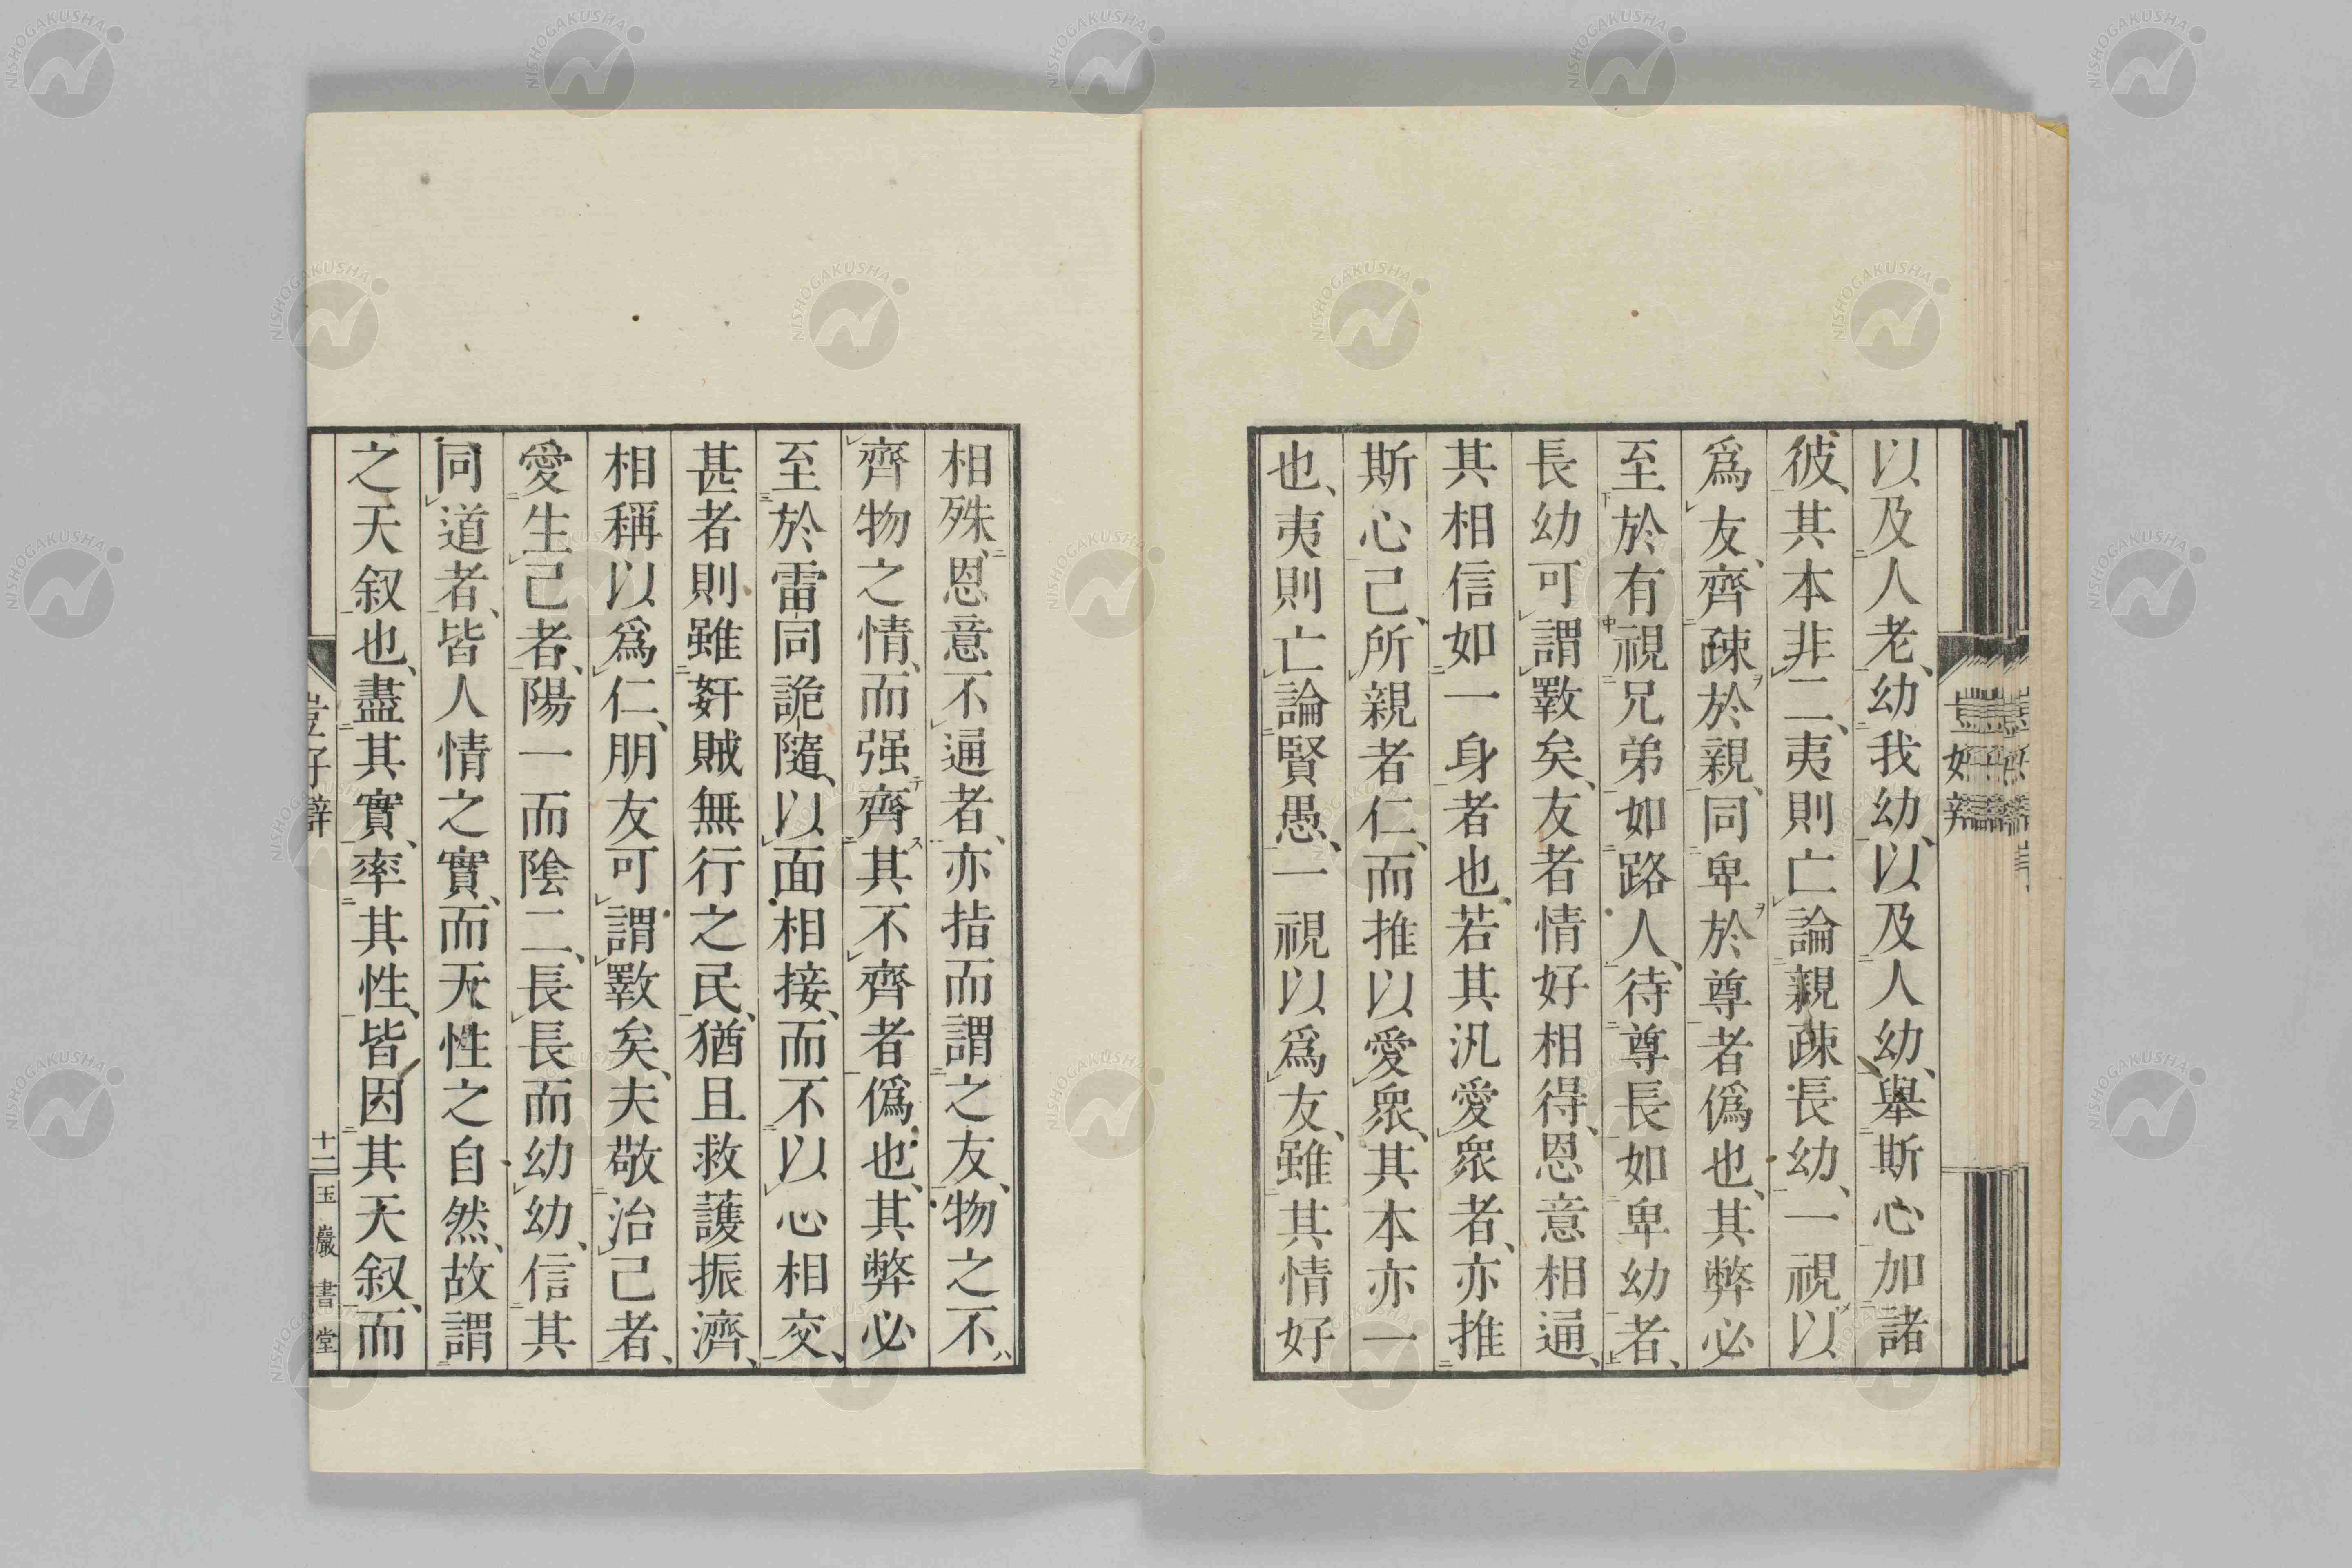 以及人老、幼我幼、以及人幼、舉斯心加諸
彼、其本非二、夷則亡論親疎長幼、一視以
爲友、齊疎於親、同卑於尊者僞也、其弊必
至於有視兄弟如路人、待尊長如卑幼者、
長幼可謂斁矣、友者情好相得、恩意相通、
其相信如一身者也、若其汎愛衆者、亦推
斯心己、所親者仁、而推以愛衆、其本亦一
也、夷則亡論賢愚、一視以爲友、雖其情好
相殊、恩意不通者、亦指而謂之友、物之不
齊物之情、而强齊其不齊者僞也、其弊必
至於雷同詭隨、以面相接、而不以心相交、
甚者則雖奸賊無行之民、猶且救護振濟、
相稱以爲仁、朋友可謂斁矣、夫敬治己者、
愛生己者、陽一而陰二、長長而幼幼、信其
同道者、皆人情之實、而天性之自然、故謂
之天叙也、盡其實、率其性、皆因其天叙、而
十二
玉巖書堂
NISHOGAKUSHA